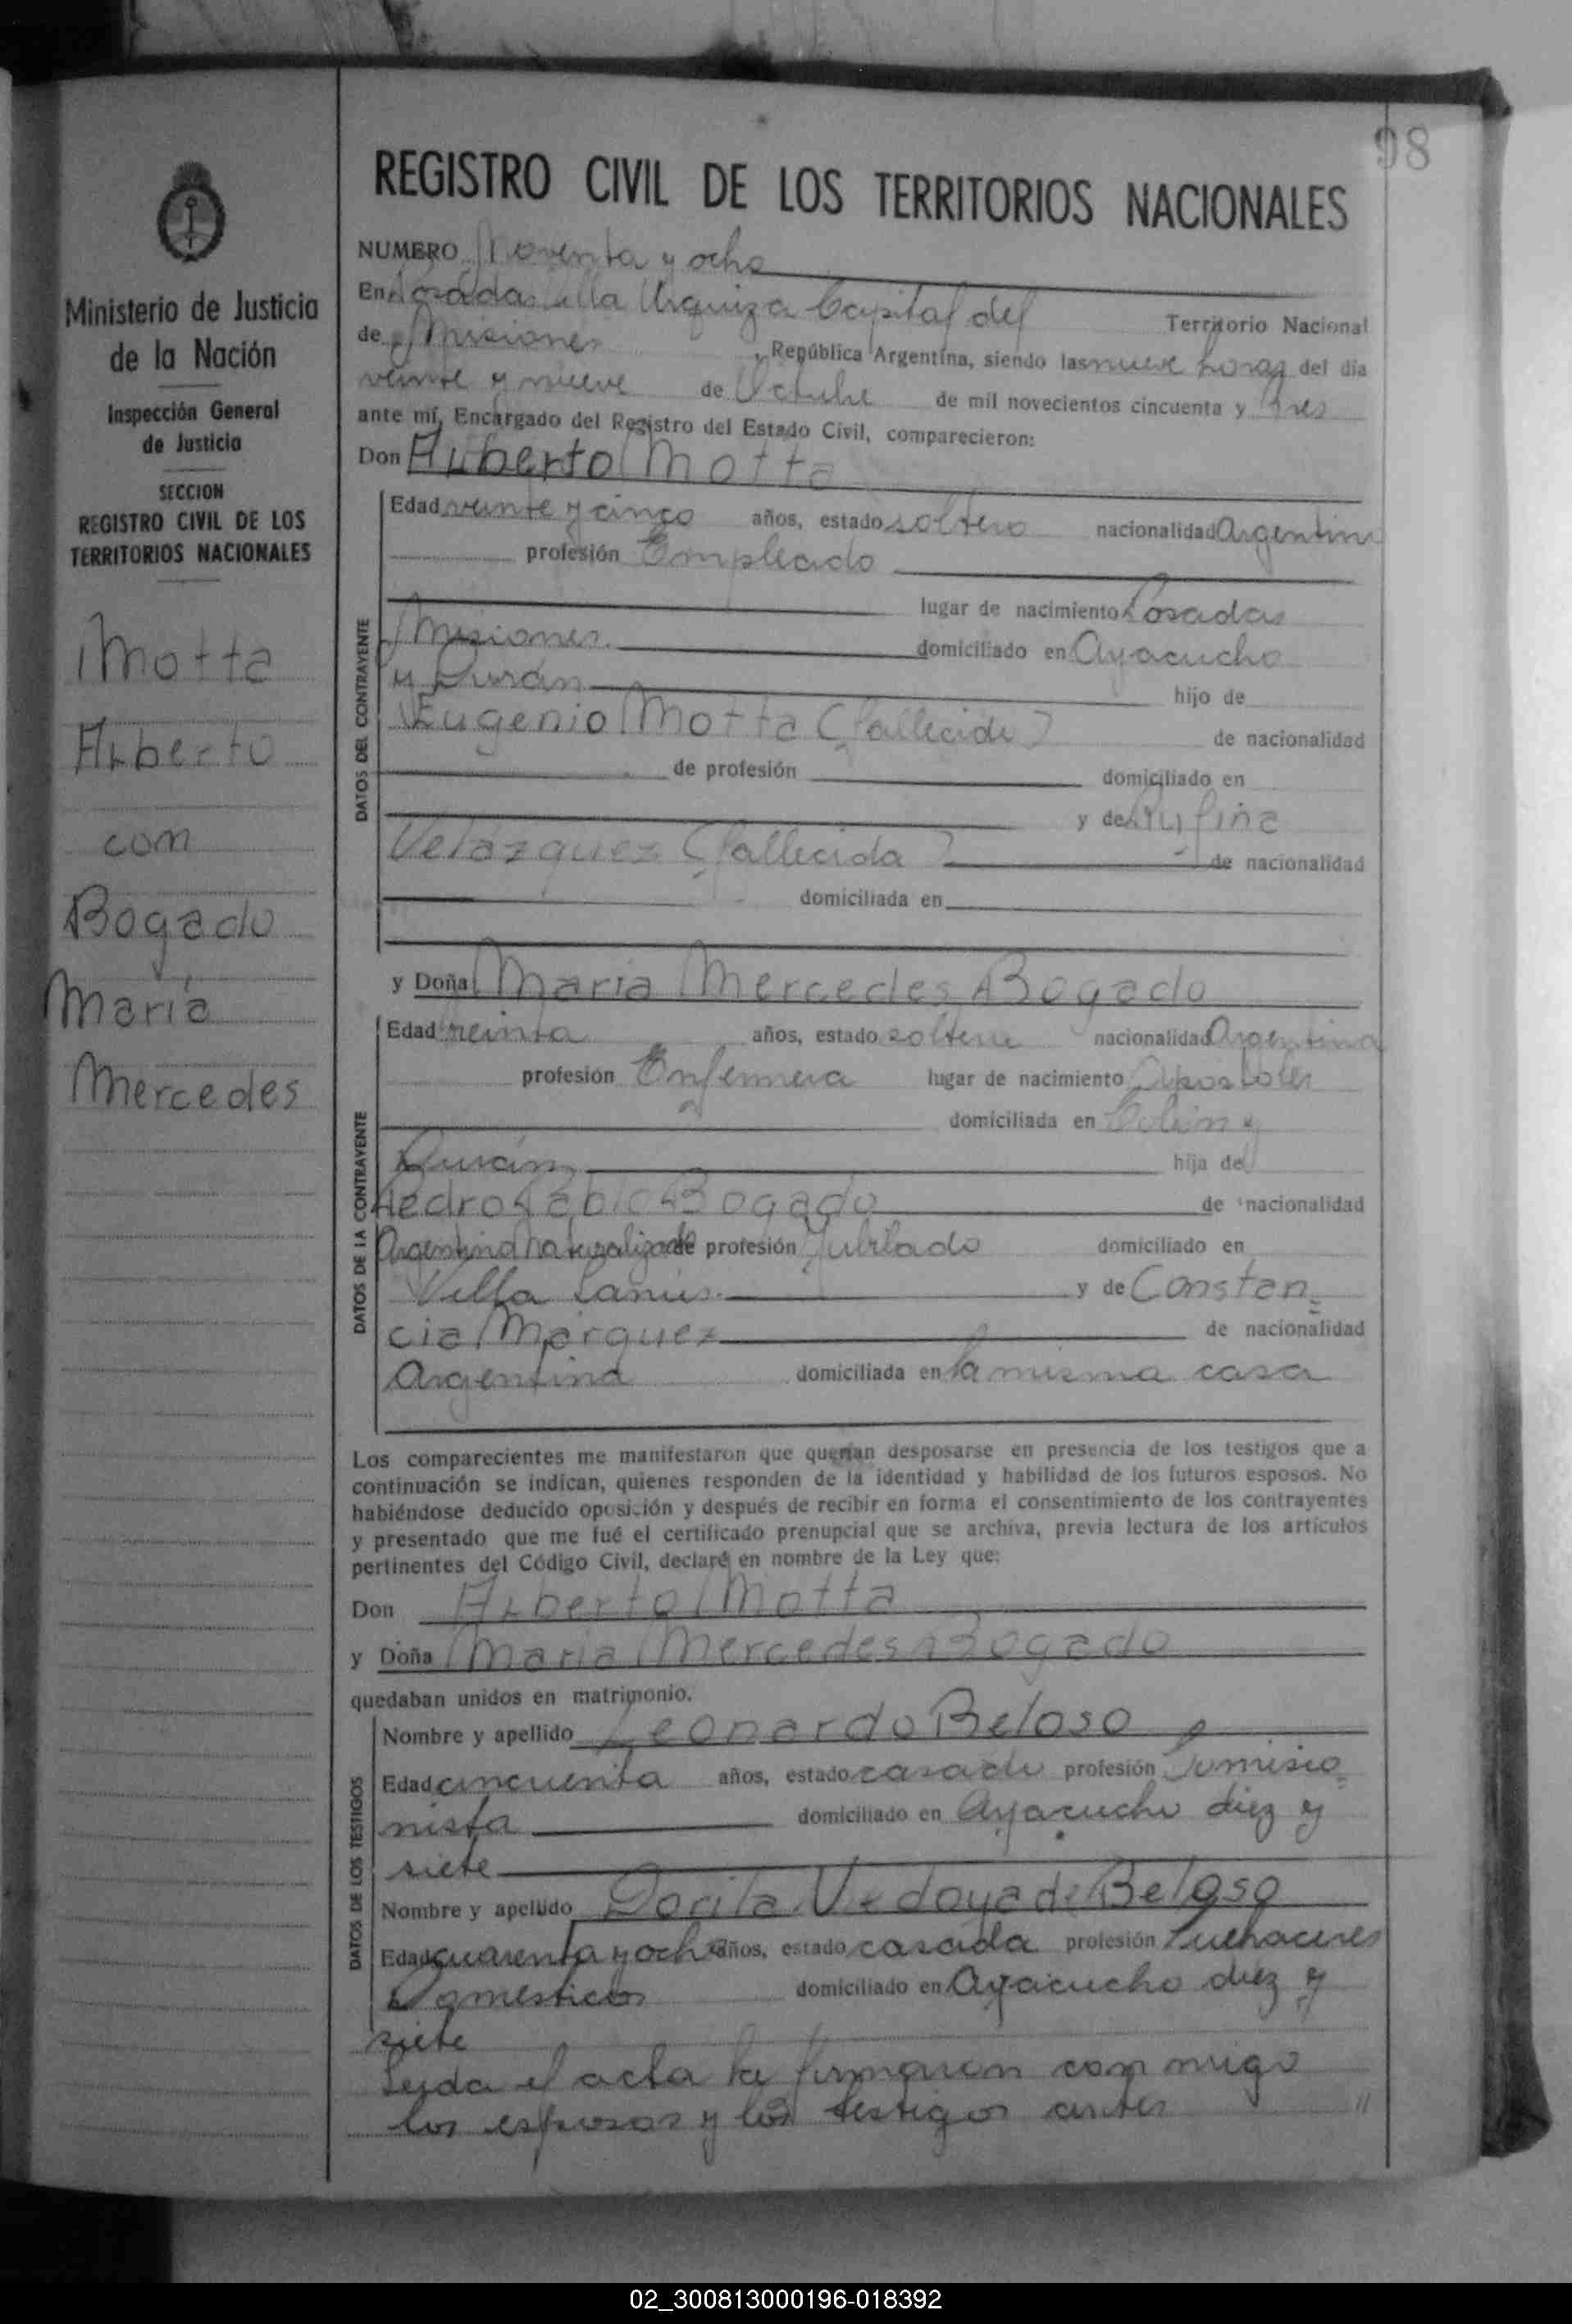 98
REGISTRO CIVIL DE LOS TERRITORIOS NACIONALES
Ministerio de Justicia
de la Nación
Inspección General
de Justicia
SECCION
REGISTRO CIVIL DE LOS
TERRITORIOS NACIONALES
Motta
Alberto
con
Bogado
María
Mercedes
NUMERO Noventa y ocho
En Posadas Villa Urquiza Capital del Territorio Nacional
de Misiones, República Argentina, siendo las nueve horas del día
veinte y nueve de Octubre de mil novecientos cincuenta y tres
ante mí, Encargado del Registro del Estado Civil, comparecieron:
Don Alberto Motta
DATOS DEL CONTRAYENTE
Edad veinte y cinco años, estado soltero nacionalidad Argentina
profesión Empleado
lugar de nacimiento Posadas
Misiones domiciliado en Ayacucho
y Durán hijo de
Eugenio Motta (fallecido) de nacionalidad
de profesión domiciliado en
y de Rufina
Velázquez (fallecida) de nacionalidad
domiciliada en
y Doña María Mercedes Bogado
DATOS DE LA CONTRAYENTE
Edad treinta años, estado soltera nacionalidad Argentina
profesión Enfermera lugar de nacimiento Apostoles
domiciliada en Colón y
Durán hija de
Pedro Pablo Bogado de nacionalidad
Argentino Naturalizado de profesión Jubilado domiciliado en
Villa Lanús y de Constan=
cia Márquez de nacionalidad
Argentina domiciliada en la misma casa
Los comparecientes me manifestaron que querían desposarse en presencia de los testigos que a
continuación se indican, quienes responden de la identidad y habilidad de los futuros esposos. No
habiéndose deducido oposición y después de recibir en forma el consentimiento de los contrayentes
y presentado que me fué el certificado prenupcial que se archiva, previa lectura de los artículos
pertinentes del Código Civil, declaré en nombre de la Ley que:
Don Alberto Motta
y Doña María Mercedes Bogado
quedaban unidos en matrimonio.
DATOS DE LOS TESTIGOS
Nombre y apellido Leonardo Beloso
Edad cincuenta años, estado casado profesión Comisio=
nista domiciliado en Ayacucho diez y
siete
Nombre y apellido Dorila Vedoya de Beloso
Edad cuarenta y ocho años, estado casada profesión Quehaceres
Domesticos domiciliado en Ayacucho diez y
siete
Leida el acta la firmaron conmigo
los esposos y los testigos antes "
02_300813000196-018392